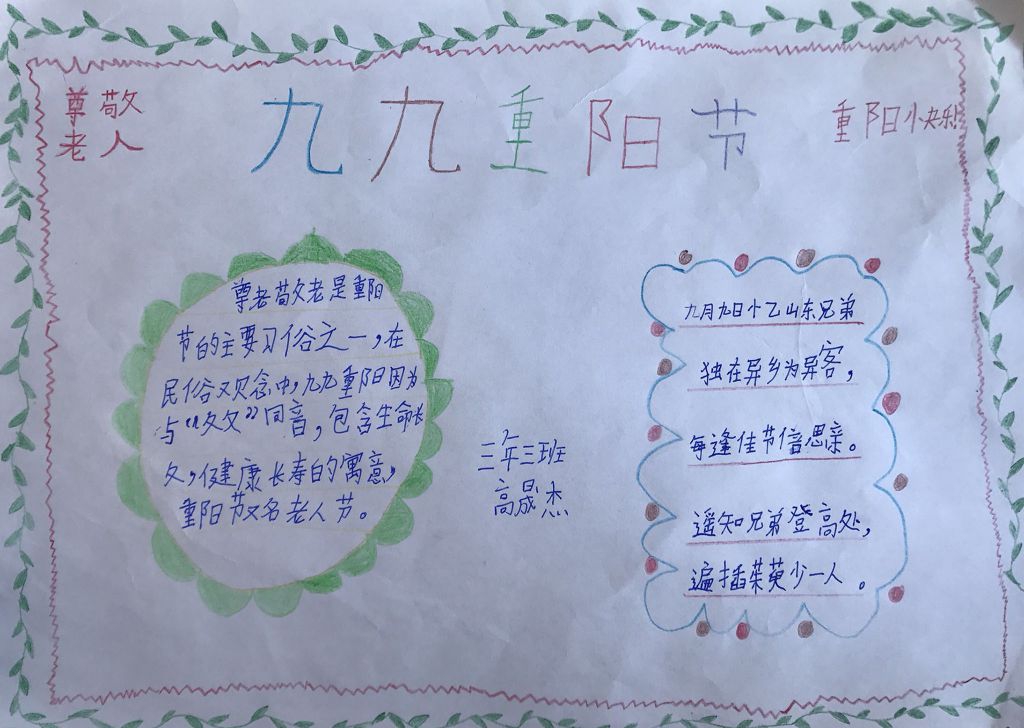 尊敬
老人
九九重阳节
重阳小快乐
尊老敬老是重阳
节的主要习俗之一,在
民俗观念中,九九重阳因为
与“久久”同音,包含生命长
久,健康长寿的寓意,
重阳节又名老人节。
三年三班
高晟杰
九月九日忆山东兄弟
独在异乡为异客,
每逢佳节倍思亲。
遥知兄弟登高处,
遍插茱萸少一人。